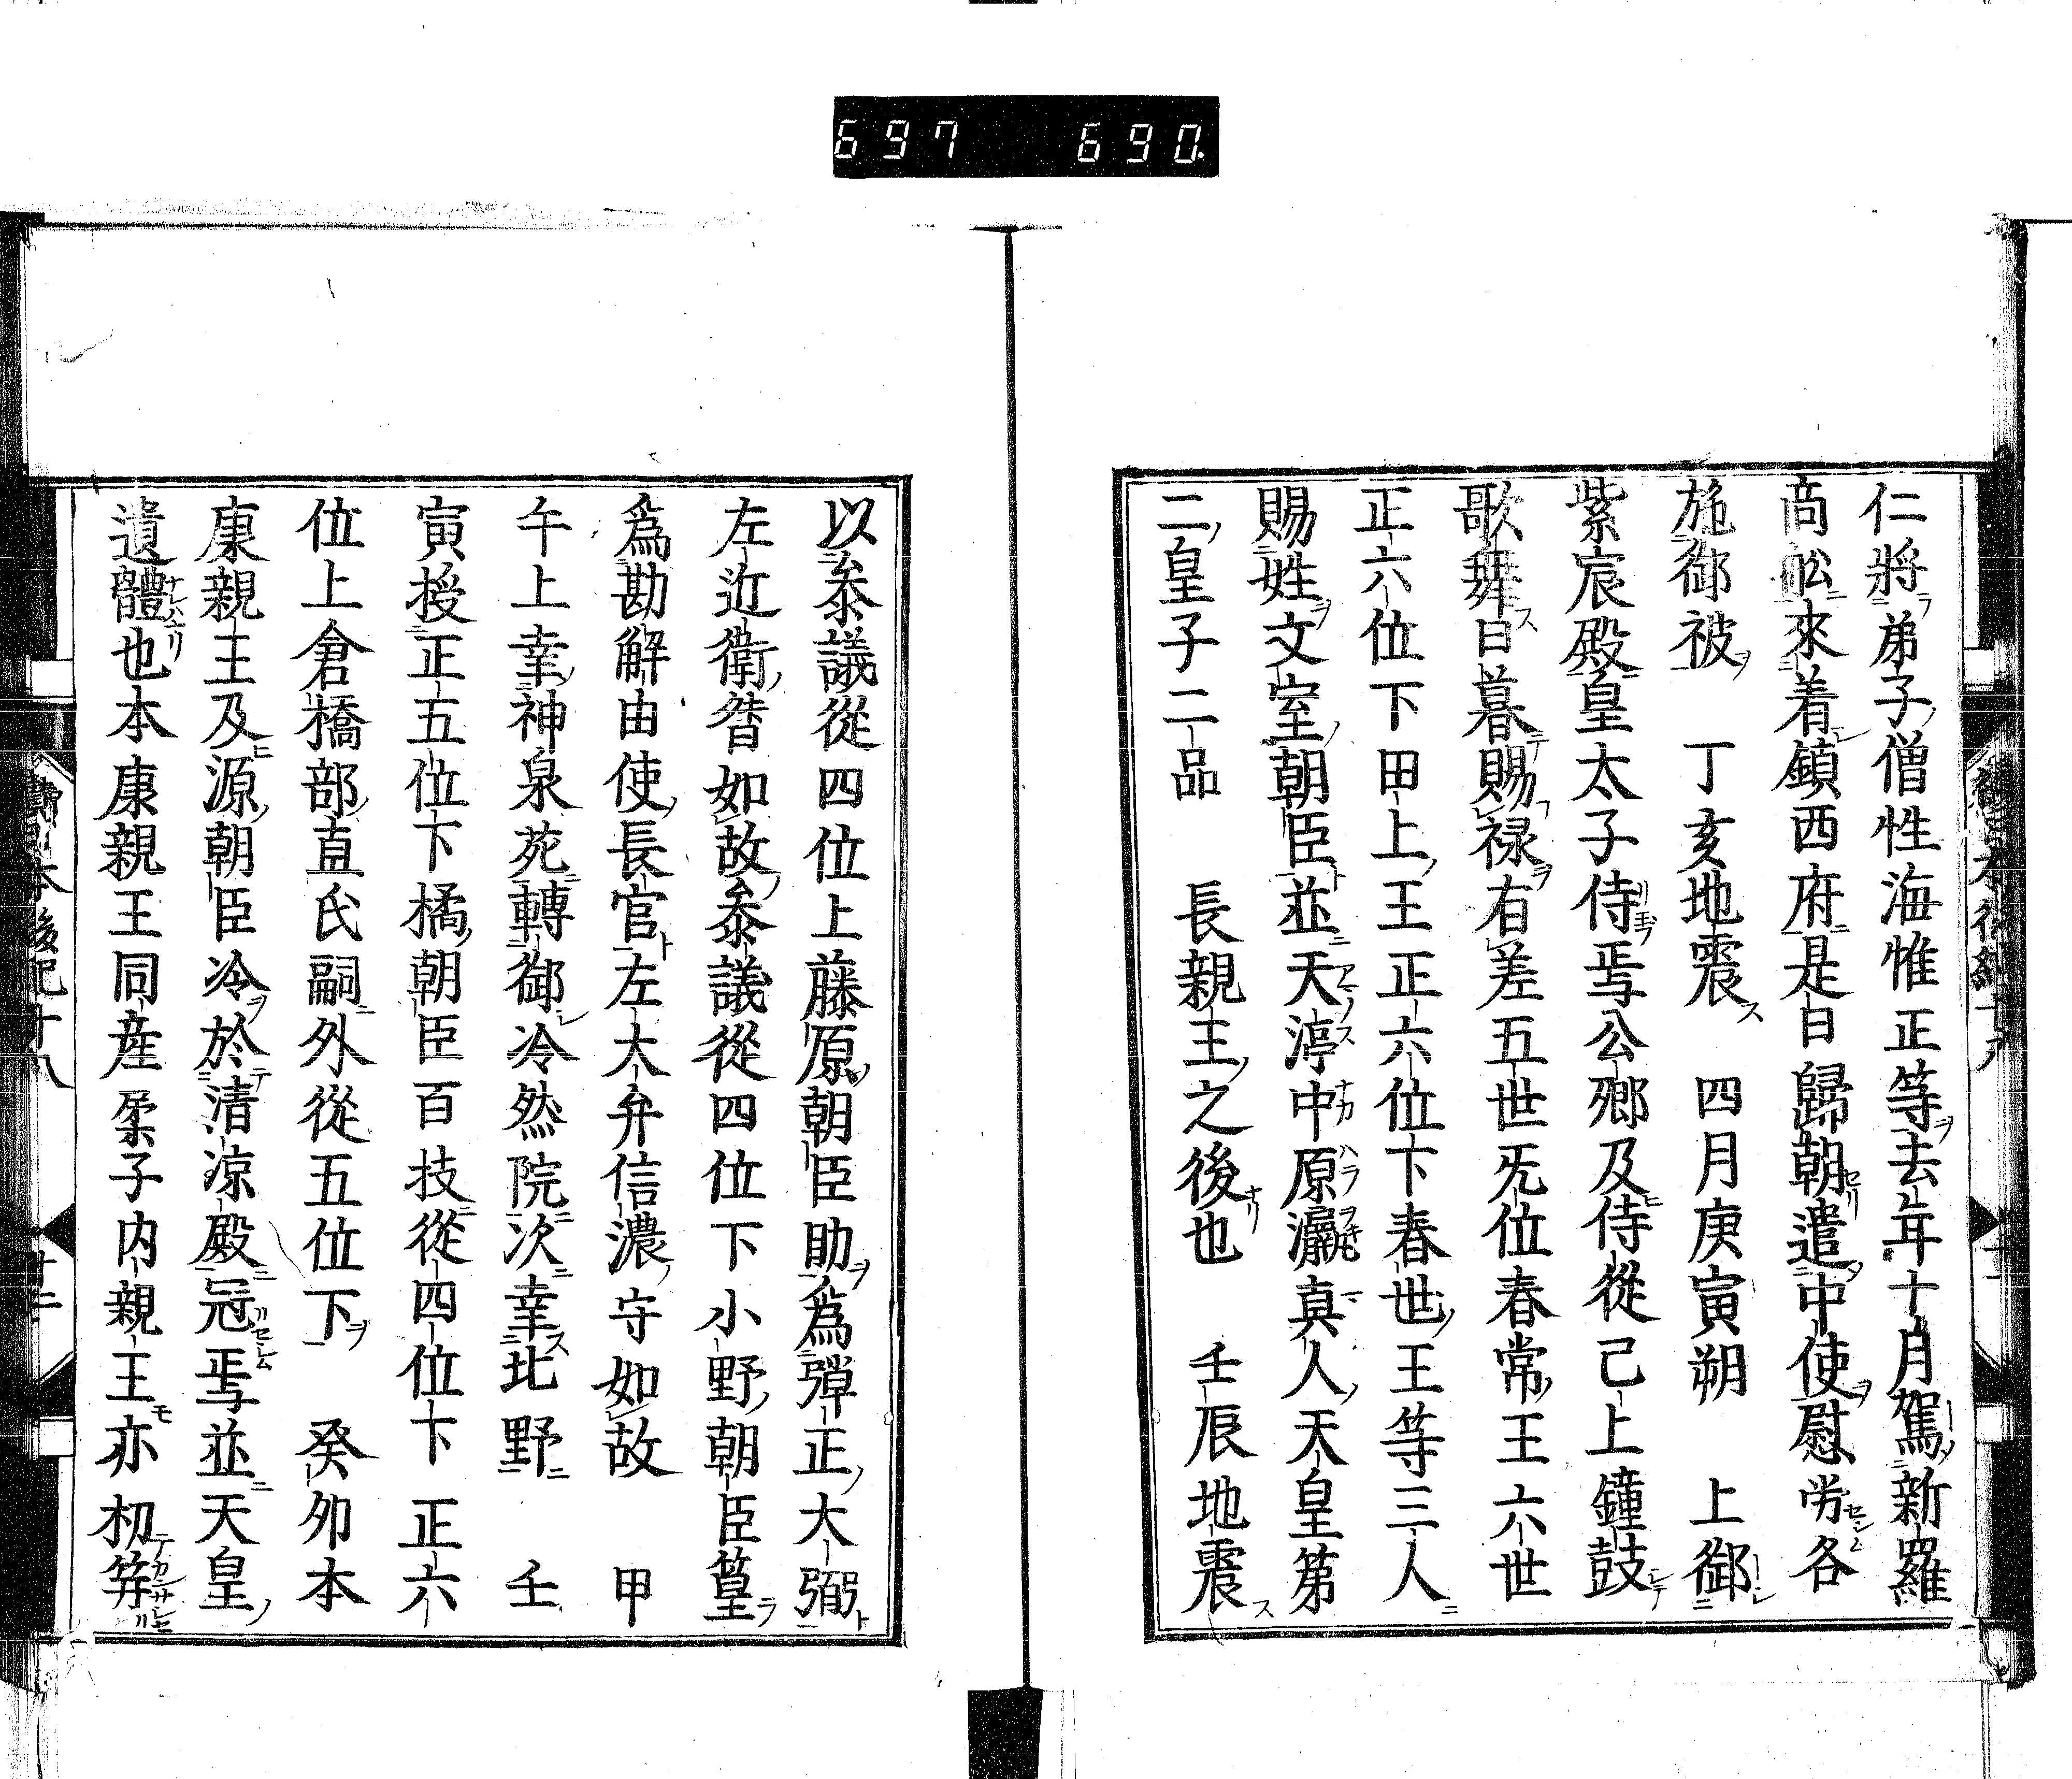 697 690
仁將弟子僧性海惟正等去年十月駕新羅
商舩來着鎮西府是日歸朝遣中使慰労各
施御被　丁亥地震　四月庚寅朔　上御
紫宸殿皇太子侍焉公卿及侍從已上鐘鼓
歌舞日暮賜禄有差五世旡位春常王六世
正六位下田上王正六位下春世王等三人
賜姓文室朝臣並天渟中原瀛真人天皇第
二皇子二品　長親王之後也　壬辰地震
以叅議從四位上藤原朝臣助爲彈正大弼
左近衛督如故叅議從四位下小野朝臣篁
爲勘解由使長官左大弁信濃守如故　甲
午上幸神泉苑轉御冷然院次幸北野　壬
寅授正五位下橘朝臣百技從四位下正六
位上倉橋部直氏嗣外從五位下　癸卯本
康親王及源朝臣冷於清凉殿冠焉並天皇
遺體也本康親王同産柔子内親王亦初笄